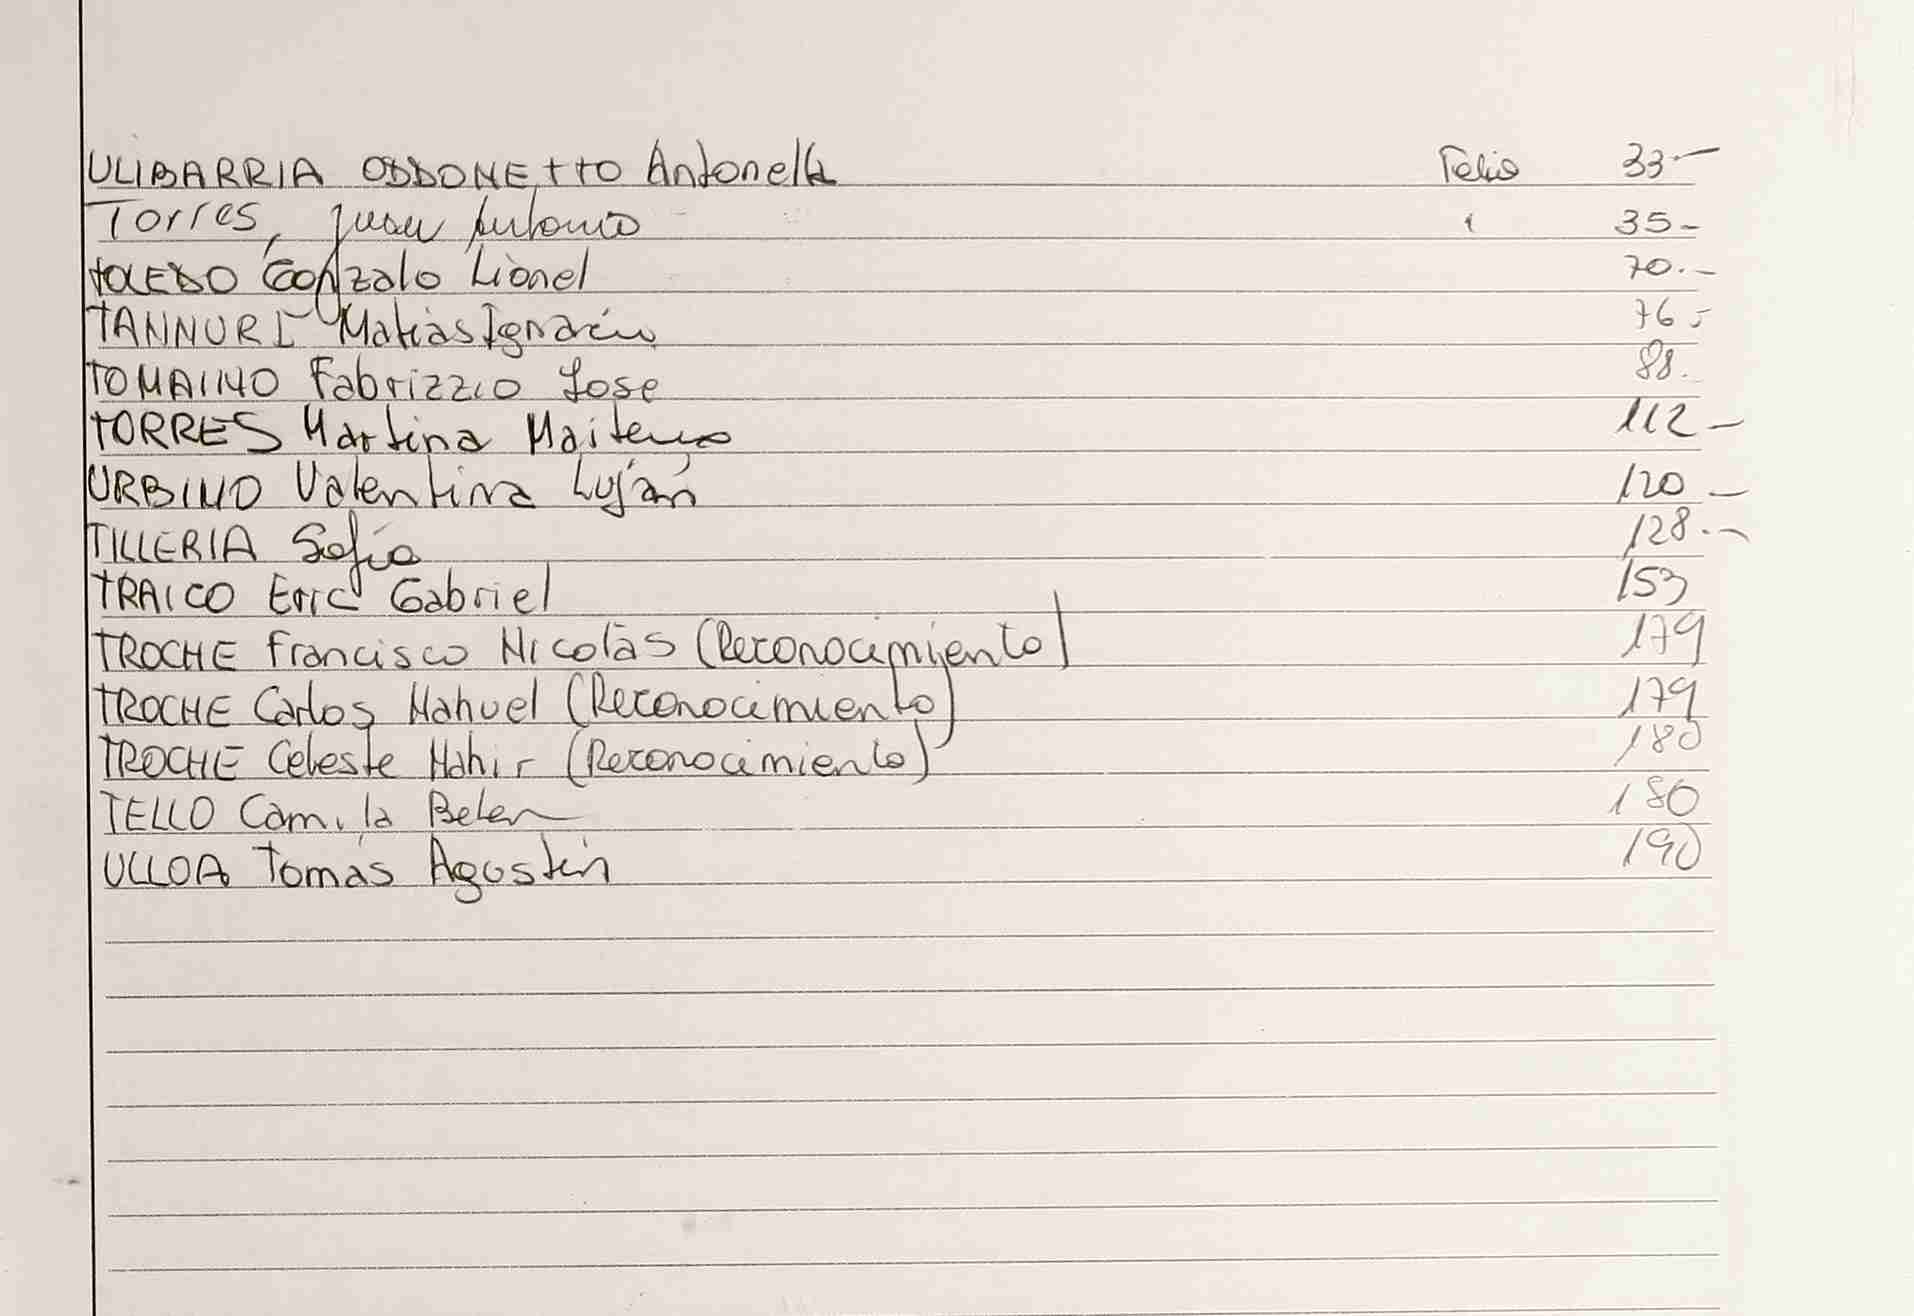 ULIBARRIA ODDONETTO Antonella Folio 33.-
Torres, Juan Antonio " 35-
TOLEDO Gonzalo Lionel 70.-
TANNURI Matias Ignacio 76-
TOMAINO Fabrizzio Jose 88.
TORRES Martina Maitena 112-
URBINO Valentina Luján 120-
TILLERIA Sofía 128.-
TRAICO Eric Gabriel 153
TROCHE Francisco Nicolás (Reconocimiento) 179
TROCHE Carlos Nahuel (Reconocimiento) 179
TROCHE Celeste Nahir (Reconocimiento) 180
TELLO Camila Belen 180
ULLOA Tomás Agustín 190